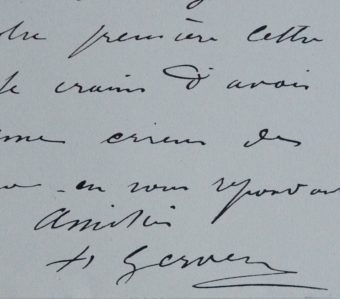 première lettre
je crains d'avoir
erreur de
en vous répondant
Amitiés
H Gervex